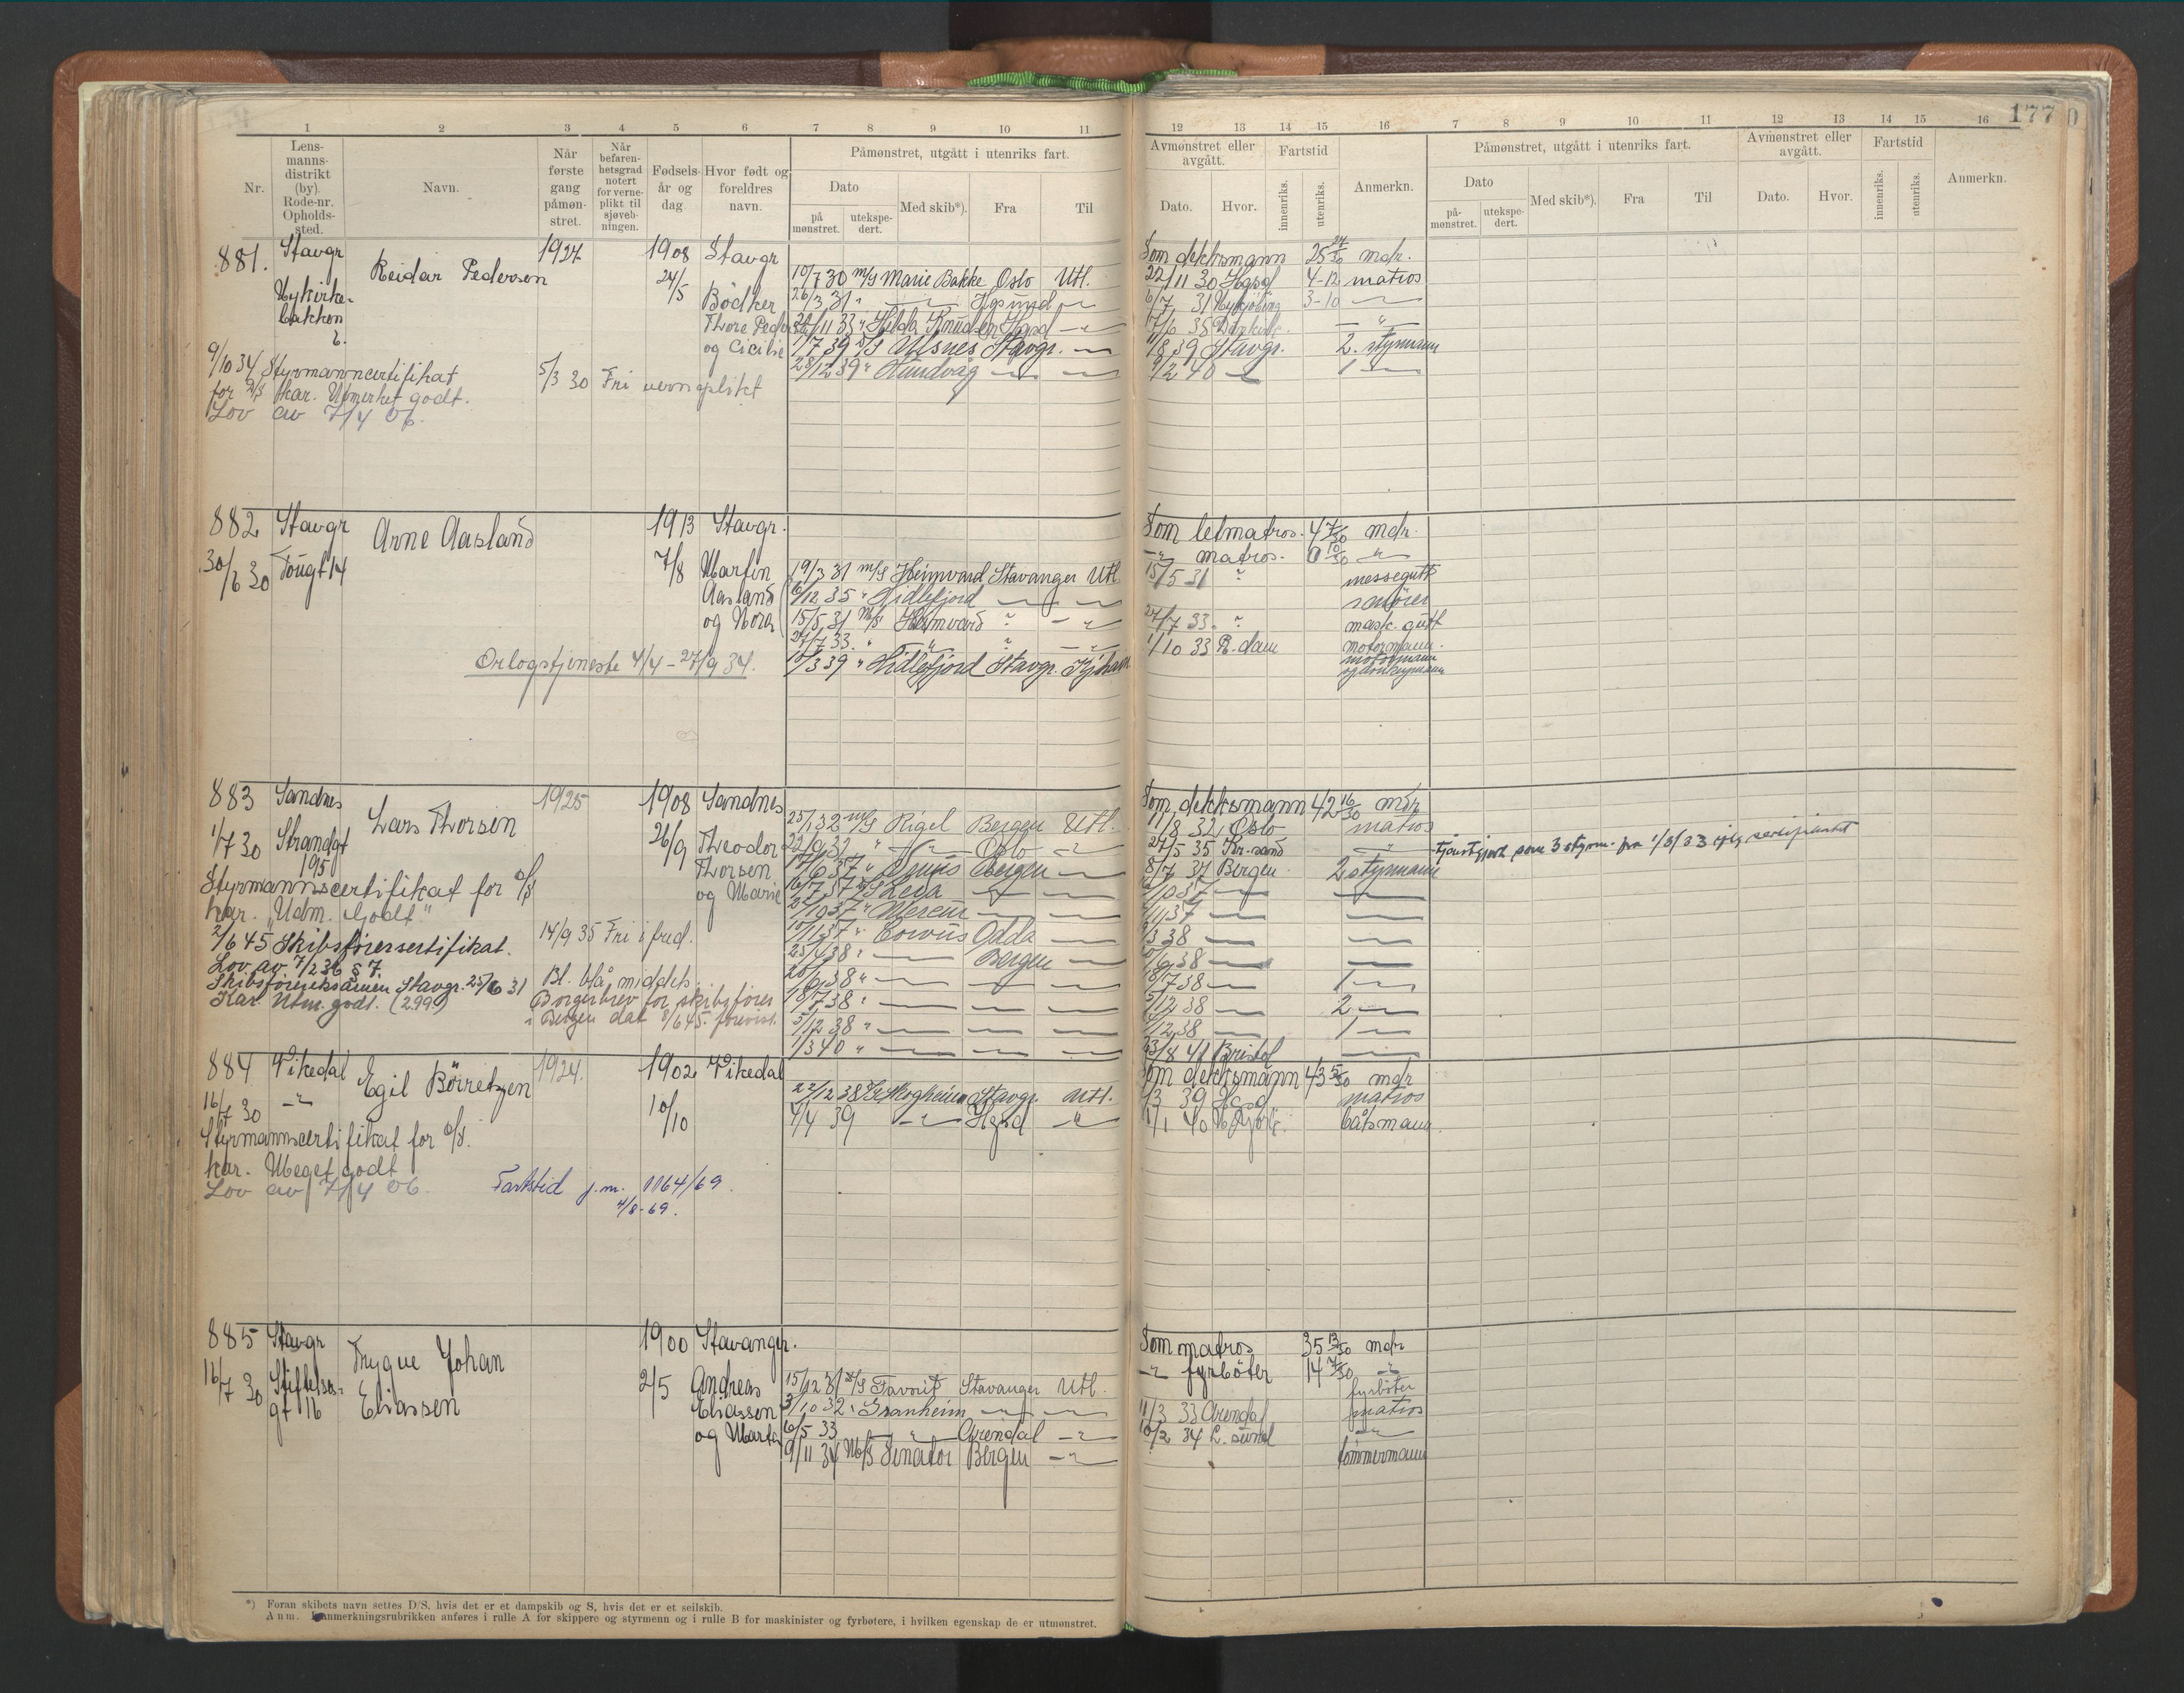 177
1 2 3 4 5 6 7 8 9 10 11 12 13 14 15 16 7 8 9 10 11 12 13 14 15 16
Nr.
Lens-
manns-
distrikt
(by).
Rode-nr.
Opholds-
sted.
Navn.
Når
første
gang
påmøn-
stret.
Når
befaren-
hetsgrad
notert
for verne-
plikt til
sjøveb-
ningen.
Fødsels-
år og
dag
Hvor født og
foreldres
navn.
Påmønstret, utgått i utenriks fart.
Dato
på
mønstret.
utekspe-
dert.
Med skib*).
Fra
Til
Avmønstret eller
avgått.
Dato.
Hvor.
Fartstid
innenriks.
utenriks.
Anmerkn.
Påmønstret, utgått i utenriks fart.
Dato
på-
mønstret.
utekspe-
dert.
Med skib*).
Fra
Til
Avmønstret eller
avgått.
Dato.
Hvor.
Fartstid
innenriks.
utenriks.
Anmerkn.
881. Stavgr Reidar Pedersen 1927 1908 Stavgr Som dekksmann 25 27/30 mdr.
24/5 10/7 30 m/s Marie Bakke Oslo Utl. 22/11 30 Hgsd 4-12 matros
Nykirke- Bødker 26/3 31 " — Hgsund — 6/7 31 Nykjøbing 3-10 —
bakken Thore Peder 11 33 " Hilda Knudsen Hgsd — 17/6 35 — "
2. og Cicilie 1/7 39 D/S Ulsnes Stavgr. — 39 Stavgr. 2. styrmann
9/10 34 Styrmanncertifikat 5/3 30 Fri verneplikt 28/12 39 " Hundvåg — — 9/2 40 — 1 —
for D/S Kar. Utmerket godt.
Lov av 7/4 06.
882 Stavgr Arne Aasland 1913 Stavgr. Som letmatros. 4 7/30 mdr.
30/6 30 14 7/8 Martin — " matros. 0 10/30 "
19/3 31 m/s Heimvard Stavanger Utl. 15/5 31 " messegutt
Aasland 6/12 35 " Lidlefjord — — smører
og Nora 15/5 31 M/S Heimvard " — " 27/7 33. " mask. gutt
27/7 33. " " " — " 1/10 33 R.dam motormann.
Orlogstjeneste 4/4 - 27/9 34. 10/3 39 " Lidlefjord Stavgr. motormann
og donkeymann
883 Sandnes Lars Thorsen 1925 1908 Sandnes Som dekksmann 42 16/30 mdr
1/7 30 Strandgt 26/9 Theodor 25/1 32 m/s Rigel Bergen Utl. 1/8 32 Oslo matros
195 Thorsen 22/9 32 " — " — Oslo — " 27/5 35 Kr.sand — " tjenstgjort som 3 styrm. fra 1/8/33
Styrmannscertifikat for D/S og Marie 17/6 37 " Bergen — 8/7 37 Bergen 2 styrmann
kar. "Udm. Godt" 16/7 37 D/S Leda — — 37 — —
2/6 45 Skibsførersertifikat. 14/9 35 Fri i fred. 37 " Mercur — — 37 — —
Lov av 7/2 36 § 7. 37 " Corvus Odda — 38 — —
Skibsførereksamen Stavgr. 25/6 31 Bl. blå middels. 25/4 38 " — Bergen — /6 38 — —
Kar. Utm. godt. (2.99) Borgerbrev for skibsfører 20/6 38 " — — — 18/7 38 — 1 —
i Bergen dat 8/6 45. forevist. 18/7 38 " — — — 5/12 38 — 2 —
5/12 38 " — — — /12 38 — 1 —
1/3 40 " — — — 23/8 41 Bristol —
884 Vikedal Egil Børretzen 1924. 1902 Vikedal Som dekksmann 43 5/30 mdr
16/7 30 — " 10/10 22/12 38 Skogheim Stavgr. Utl. /3 39 Hgsd matros
Styrmannscertifikat for D/S. 4/4 39 — " — Hgsd " 1/1 40 båtsmann.
kar. Meget godt
Lov av 7/4 06. Fartstid j.m. 1164/69.
4/8-69.
885 Stavgr Trygve Johan Eliassen 1900 Stavanger. Som matros 35 13/30 mdr
16/7 30 Stiftelses- 2/5 Andreas 15/12 31 D/S Favorit Stavanger Utl. — " fyrbøter 14 7/30 "
gt 16 fyrbøter
Eliassen 3/10 32 " Granheim — — 11/3 33 Arendal matros
og Marta 6/5 33 — " — Arendal — " 10/2 34 L. sund — " —
9/11 34 M/S Senator Bergen — " tømmermann
*) Foran skibets navn settes D/S, hvis det er et dampskib og S, hvis det er et seilskib.
Anm. I anmerkningsrubrikken anføres i rulle A for skippere og styrmenn og i rulle B for maskinister og fyrbøtere, i hvilken egenskap de er utmønstret.